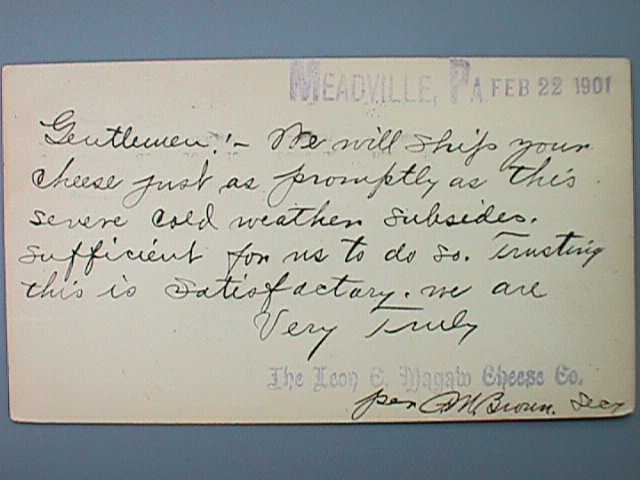 MEADVILLE, PA FEB 22 1901
Gentlemen!- We will ship your
cheese just as promptly as this
severe cold weather subsides.
sufficient for us to do so. Trusting
this is satisfactory. we are
Very Truly
The Leon C. Magaw Cheese Co.
per M. Brown. Secy